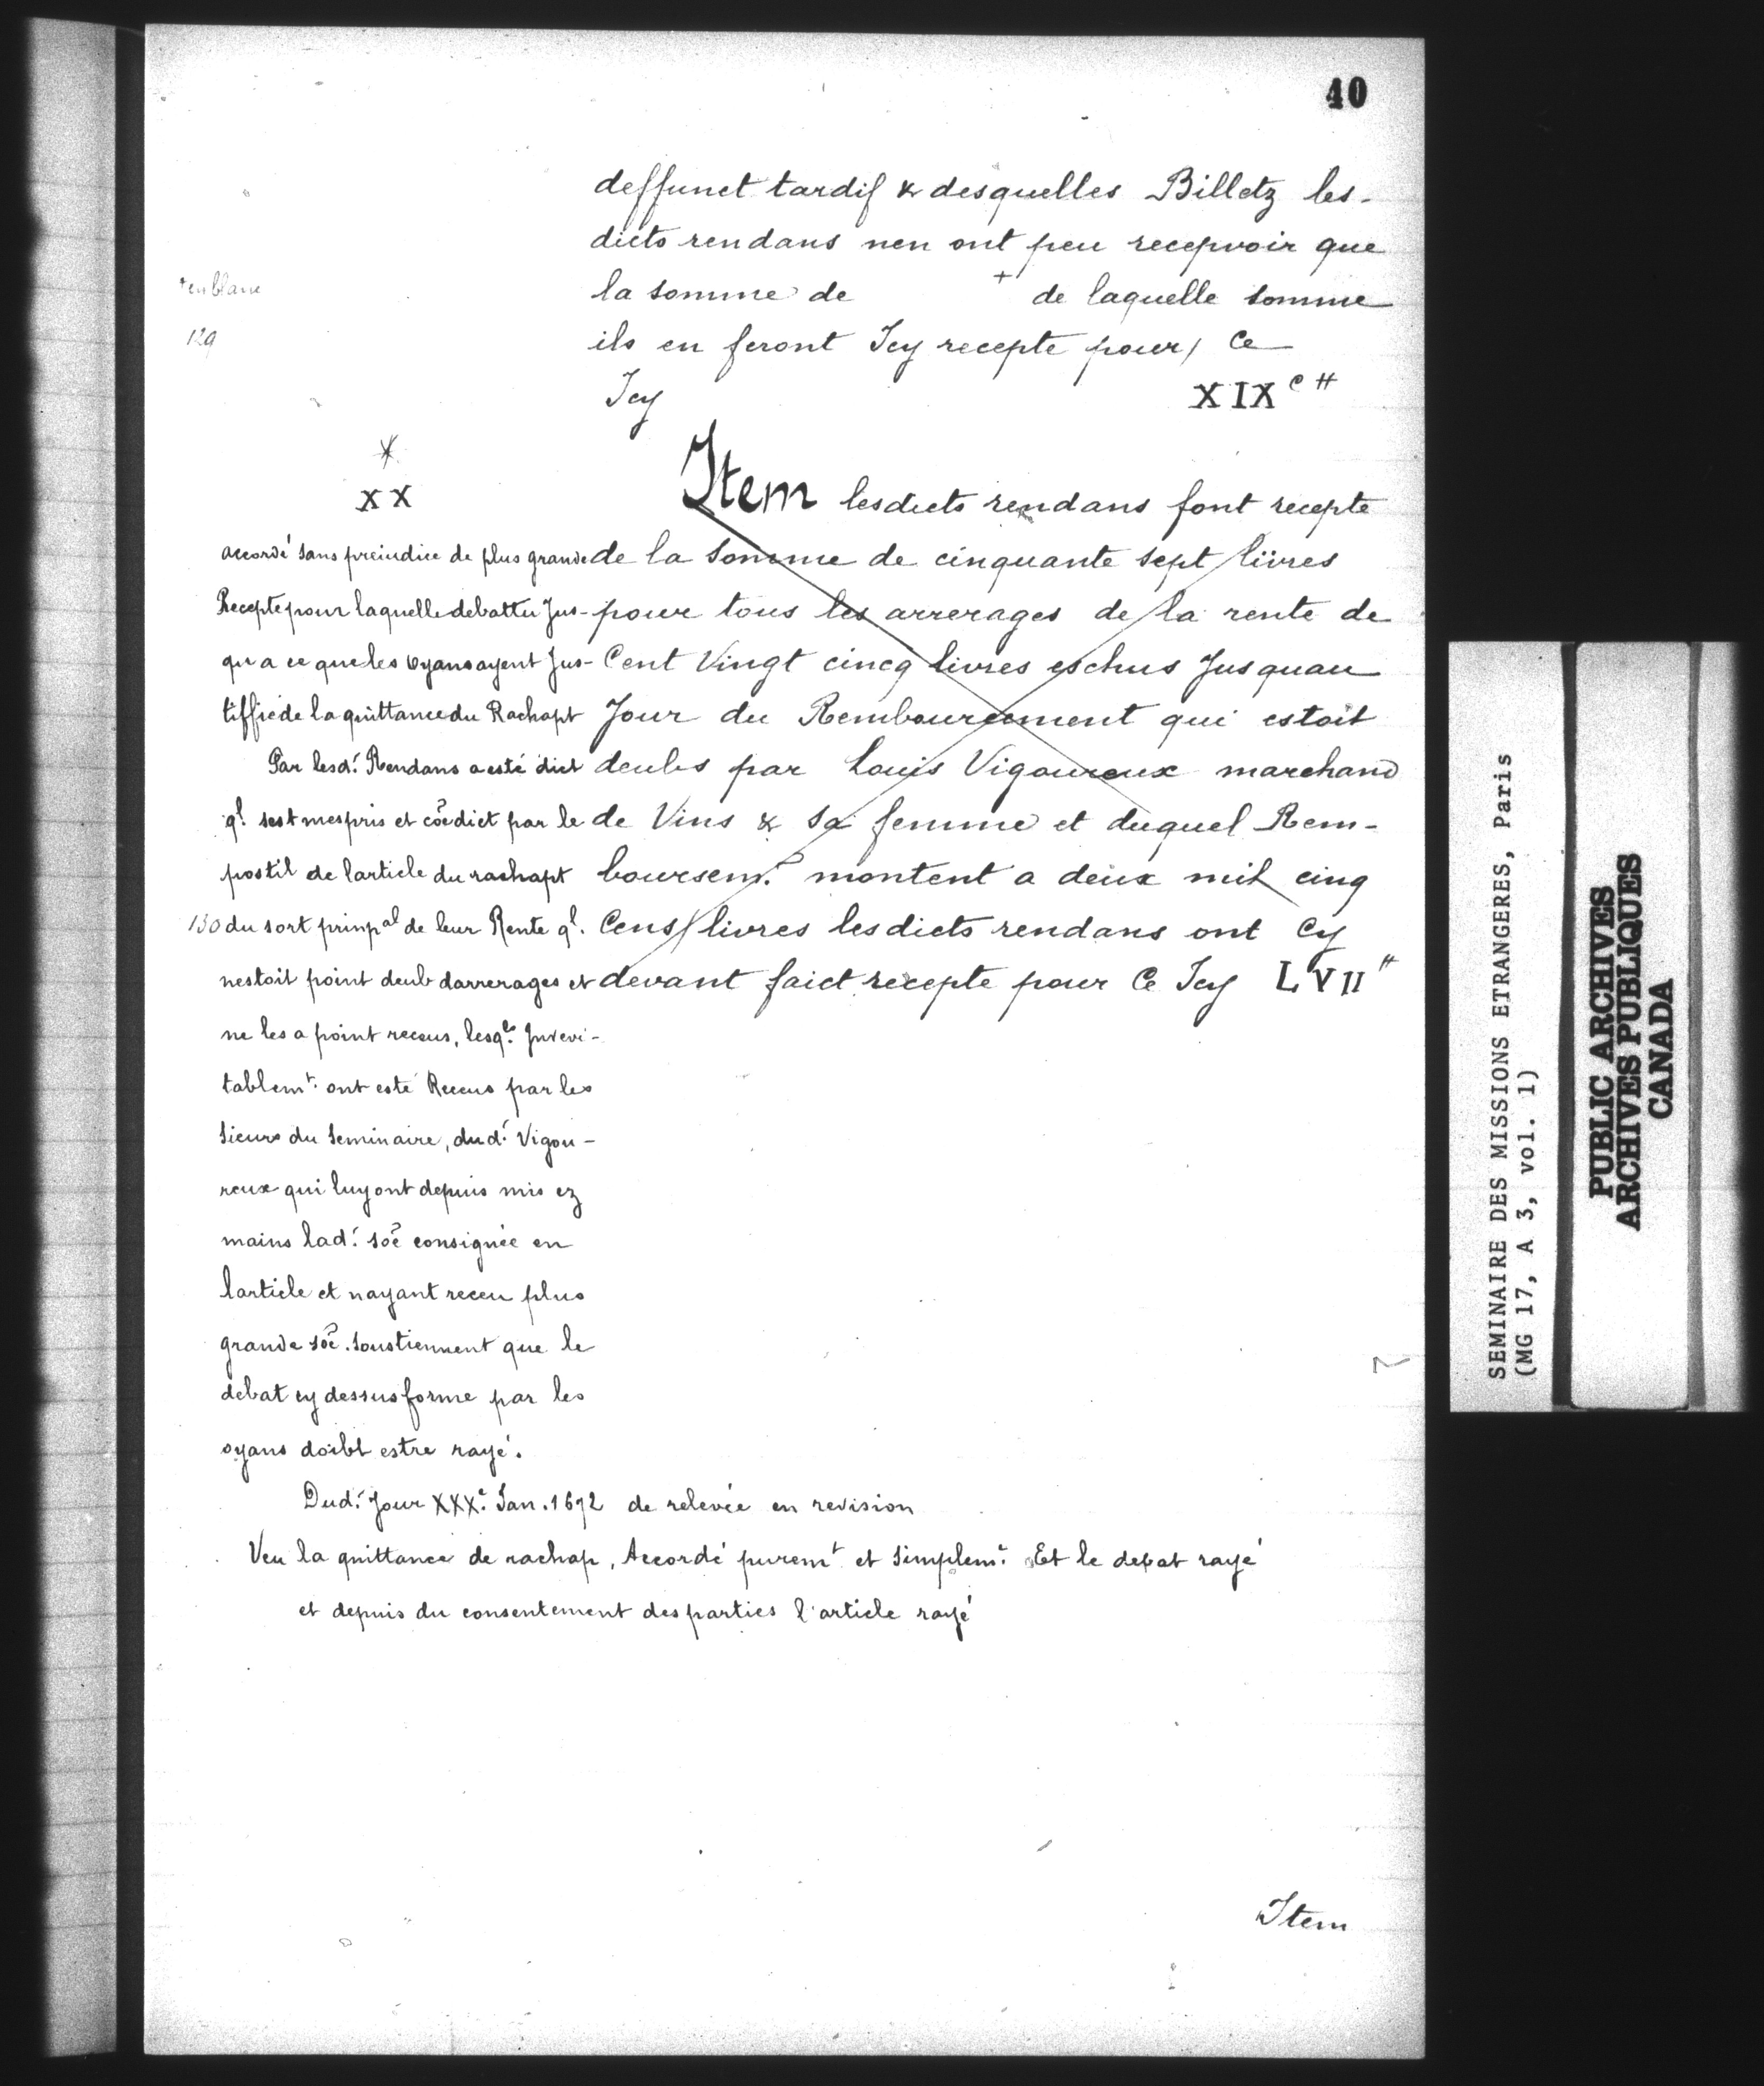 40
deffunct tardif & desquelles Billetz les-
dicts rendans nen ont peu recepvoir que
la somme de + de laquelle somme
ils en feront Icy recepte pour / Ce
Icy XIX c ₶
+ en blanc
129
*
XX
Item lesdicts rendans font recepte
de la somme de cinquante sept livres
pour tous les arrerages de la rente de
Cent Vingt cincq livres eschus Jusquau
Jour du Remboursement qui estoit
deubs par Louis Vigoureux marchand
de Vins & sa femme et duquel Rem-
boursemt. montent a deux mil cinq
Cens livres lesdicts rendans ont Cy
devant faict recepte pour Ce Icy LVII ₶
accordé sans preiudice de plus grande
Recepte pour laquelle debattu Jus-
qu a ce que les oyans ayent Jus-
tiffié de la quittance du Rachapt
Par lesd. Rendans a esté dict
ql. sest mespris et cōe dict par le
postil de larticle du rachapt
130 du sort prinpal de leur Rente ql.
nestoit point deub darrerages et
ne les a point receus, lesqls. Inevi-
tablemt. ont esté Receus par les
sieurs du Seminaire, dud. Vigou-
reux qui luy ont depuis mis ez
mains lad. sōe consignée en
larticle et nayant receu plus
grande sōe. soustiennent que le
debat cy dessus forme par les
oyans doibt estre rayé.
Dud. Jour XXXe. Jan. 1672 de relevée en revision
Veu la quittance de rachap, Accordé puremt et simplemt. Et le debat rayé
et depuis du consentement des parties l'article rayé
Item
SEMINAIRE DES MISSIONS ETRANGERES, Paris
(MG 17, A 3, vol. 1)
PUBLIC ARCHIVES
ARCHIVES PUBLIQUES
CANADA